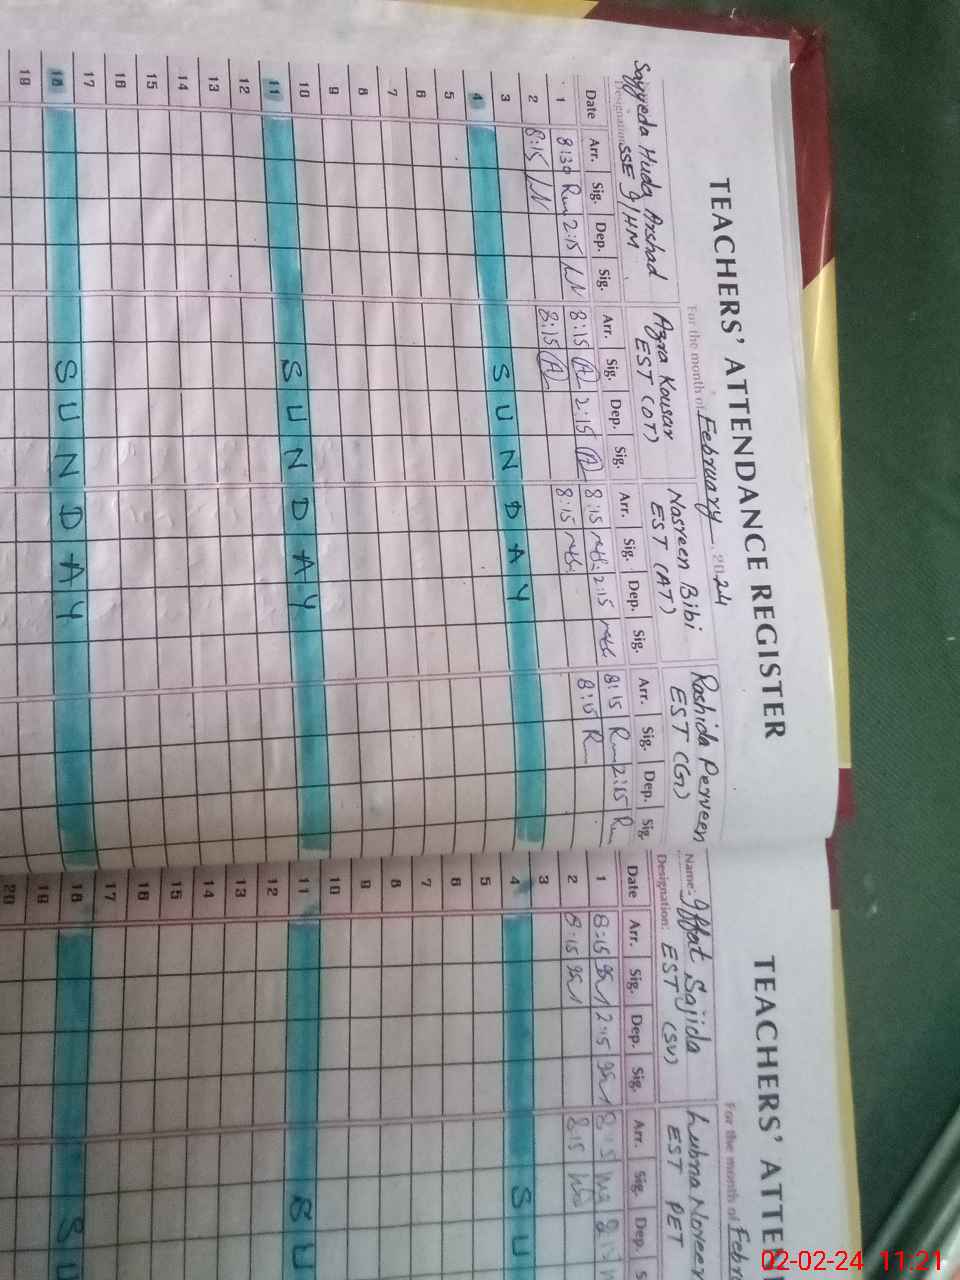 TEACHERS' ATTENDANCE REGISTER
For the month of February 2024
Sayyeda Huda Arshad Azra Kousar Nasreen Bibi Rashida Perveen
Designation: SSE I/HM EST (OT) EST (AT) EST (G)
Date Arr. Sig. Dep. Sig. Arr. Sig. Dep. Sig. Arr. Sig. Dep. Sig. Arr. Sig. Dep. Sig.
1 8:30 2:15 8:15 A 2:15 A 8:15 2:15 8:15 2:15
2 8:15 8:15 A 8:15 8:15 R
3
4 SUNDAY
5
6
7
8
9
10
11 SUNDAY
12
13
14
15
16
17
18 SUNDAY
19
TEACHERS' ATTE
For the month of Febr
Name: Iffat Sajida Lubna Noreen
Designation: EST (SV) EST PET
Date Arr. Sig. Dep. Sig. Arr. Sig. Dep.
1 8:15 2:15
2 8:15 8:15
3
4 SU
5
6
7
8
9
10
11 SU
12
13
14
15
16
17
18 SU
19
20
02-02-24 11:21